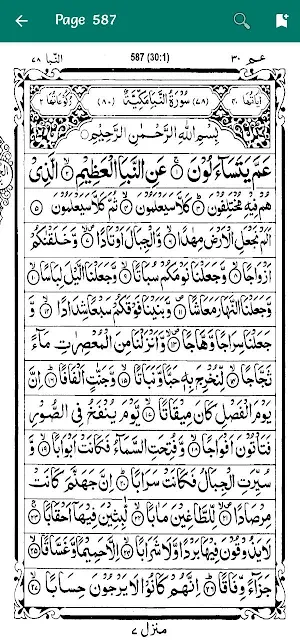 Page 587
النبا ٧٨
587 (30:1)
عم ٣٠
اٰیاتها ٤٠
(٧٨) سُوْرَةُ النَّبَاِ مَكِّيَّةٌ (٨٠)
رُكُوْعَاتُهَا ٢
بِسْمِ اللّٰهِ الرَّحْمٰنِ الرَّحِيْمِ
عَمَّ يَتَسَآءَلُوْنَ ۚ﴿١﴾ عَنِ النَّبَاِ الْعَظِيْمِ ۙ﴿٢﴾ الَّذِيْ
هُمْ فِيْهِ مُخْتَلِفُوْنَ ؕ﴿٣﴾ كَلَّا سَيَعْلَمُوْنَ ۙ﴿٤﴾ ثُمَّ كَلَّا سَيَعْلَمُوْنَ ﴿٥﴾
اَلَمْ نَجْعَلِ الْاَرْضَ مِهٰدًا ۙ﴿٦﴾ وَّالْجِبَالَ اَوْتَادًا ۪ۙ﴿٧﴾ وَّخَلَقْنٰكُمْ
اَزْوَاجًا ۙ﴿٨﴾ وَّجَعَلْنَا نَوْمَكُمْ سُبَاتًا ۙ﴿٩﴾ وَّجَعَلْنَا الَّيْلَ لِبَاسًا ۙ﴿١٠﴾
وَّجَعَلْنَا النَّهَارَ مَعَاشًا ۪﴿١١﴾ وَّبَنَيْنَا فَوْقَكُمْ سَبْعًا شِدَادًا ۙ﴿١٢﴾ وَّ
جَعَلْنَا سِرَاجًا وَّهَّاجًا ۪ۙ﴿١٣﴾ وَّاَنْزَلْنَا مِنَ الْمُعْصِرٰتِ مَآءً
ثَجَّاجًا ۙ﴿١٤﴾ لِّنُخْرِجَ بِهٖ حَبًّا وَّنَبَاتًا ۙ﴿١٥﴾ وَّجَنّٰتٍ اَلْفَافًا ؕ﴿١٦﴾ اِنَّ
يَوْمَ الْفَصْلِ كَانَ مِيْقَاتًا ۙ﴿١٧﴾ يَّوْمَ يُنْفَخُ فِي الصُّوْرِ
فَتَاْتُوْنَ اَفْوَاجًا ۙ﴿١٨﴾ وَّفُتِحَتِ السَّمَآءُ فَكَانَتْ اَبْوَابًا ۙ﴿١٩﴾ وَّ
سُيِّرَتِ الْجِبَالُ فَكَانَتْ سَرَابًا ؕ﴿٢٠﴾ اِنَّ جَهَنَّمَ كَانَتْ
مِرْصَادًا ۪ۙ﴿٢١﴾ لِّلطَّاغِيْنَ مَاٰبًا ۙ﴿٢٢﴾ لّٰبِثِيْنَ فِيْهَاۤ اَحْقَابًا ۚ﴿٢٣﴾
لَا يَذُوْقُوْنَ فِيْهَا بَرْدًا وَّلَا شَرَابًا ۙ﴿٢٤﴾ اِلَّا حَمِيْمًا وَّغَسَّاقًا ۙ﴿٢٥﴾
جَزَآءً وِّفَاقًا ؕ﴿٢٦﴾ اِنَّهُمْ كَانُوْا لَا يَرْجُوْنَ حِسَابًا ۙ﴿٢٧﴾
منزل ٧